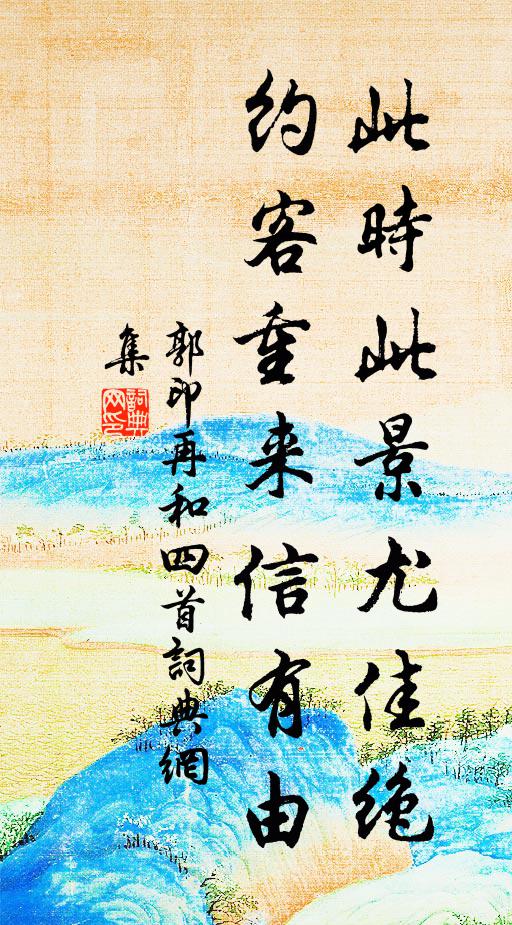 此時此景尤佳絶
約客重来信有由
郭印再和四首詞典網
集
詞典
网